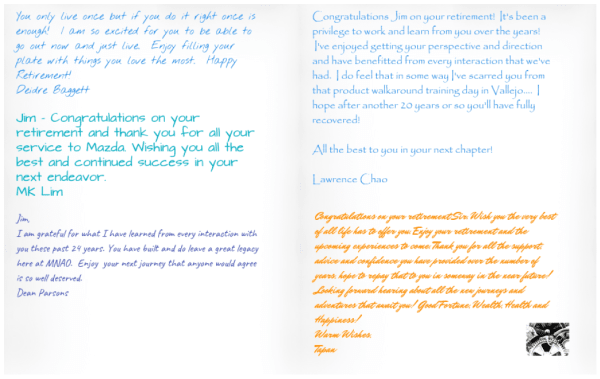 You only live once but if you do it right once is
enough! I am so excited for you to be able to
go out now and just live. Enjoy filling your
plate with things you love the most. Happy
Retirement!
Deidre Baggett
Jim - Congratulations on your
retirement and thank you for all your
service to Mazda. Wishing you all the
best and continued success in your
next endeavor.
MK Lim
Jim,
I am grateful for what I have learned from every interaction with
you these past 24 years. You have built and do leave a great legacy
here at MNAO. Enjoy your next journey that anyone would agree
is so well deserved.
Dean Parsons
Congratulations Jim on your retirement! It's been a
privilege to work and learn from you over the years!
I've enjoyed getting your perspective and direction
and have benefitted from every interaction that we've
had. I do feel that in some way I've scarred you from
that product walkaround training day in Vallejo.... I
hope after another 20 years or so you'll have fully
recovered!
All the best to you in your next chapter!
Lawrence Chao
Congratulations on your retirement Sir. Wish you the very best
of all life has to offer you. Enjoy your retirement and the
upcoming experiences to come. Thank you for all the support,
advice and confidence you have provided over the number of
years, hope to repay that to you in someway in the near future!
Looking forward hearing about all the new journeys and
adventures that await you! Good Fortune, Wealth, Health and
Happiness!
Warm Wishes,
Tapan